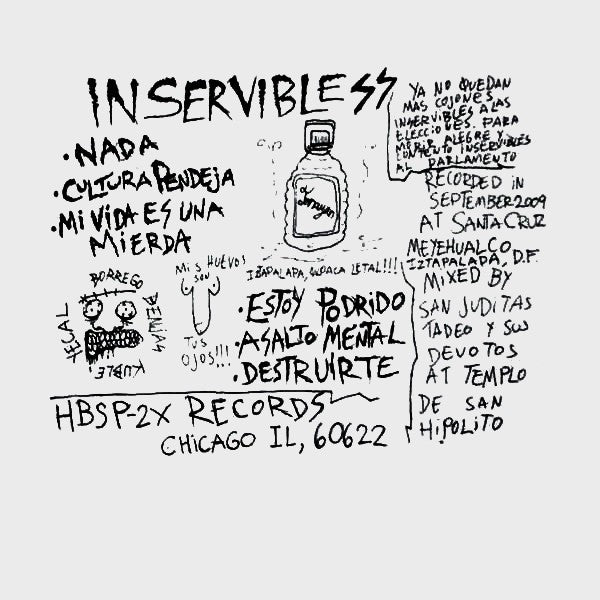 INSERVIBLESS
• NADA
• CULTURA PENDEJA
• MI VIDA ES UNA
MIERDA
YA NO QUEDAN
MAS COJONES
INSERVIBLES A LAS
ELECCIONES. PARA
MERIR ALEGRE Y
INSERVIBLES
AL PARLAMENTO
RECORDED IN
SEPTEMBER 2009
AT SANTA CRUZ
MEYEHUALCO
IZTAPALAPA, D.F.
MIXED BY
SAN JUDITAS
TADEO Y SUS
DEVOTOS
AT TEMPLO
DE SAN
HIPOLITO
Tonayan
IZTAPALAPA, LETAL!!!
BORREGO
BENJAS
KUBLE!
HECAL
MIS HUEVOS
SON
TUS
OJOS!!!
• ESTOY PODRIDO
• ASALTO MENTAL
• DESTRUIRTE
HBSP-2X RECORDS
CHICAGO IL, 60622